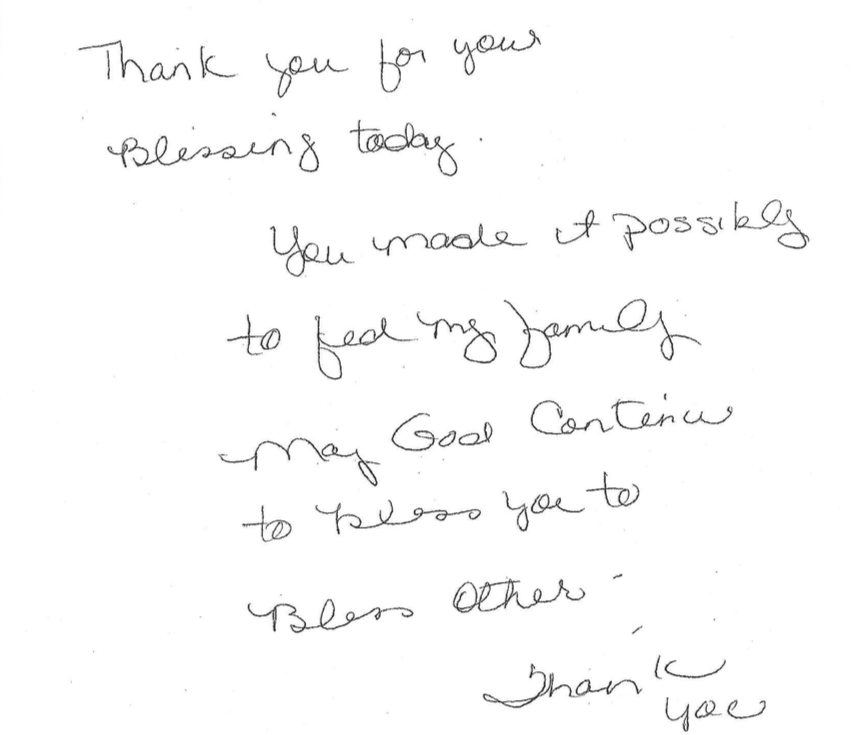 Thank you for your
Blessing today.
You made it possibly
to feed my family
May God Continu
to bless you to
Bless Other -
Thank
you